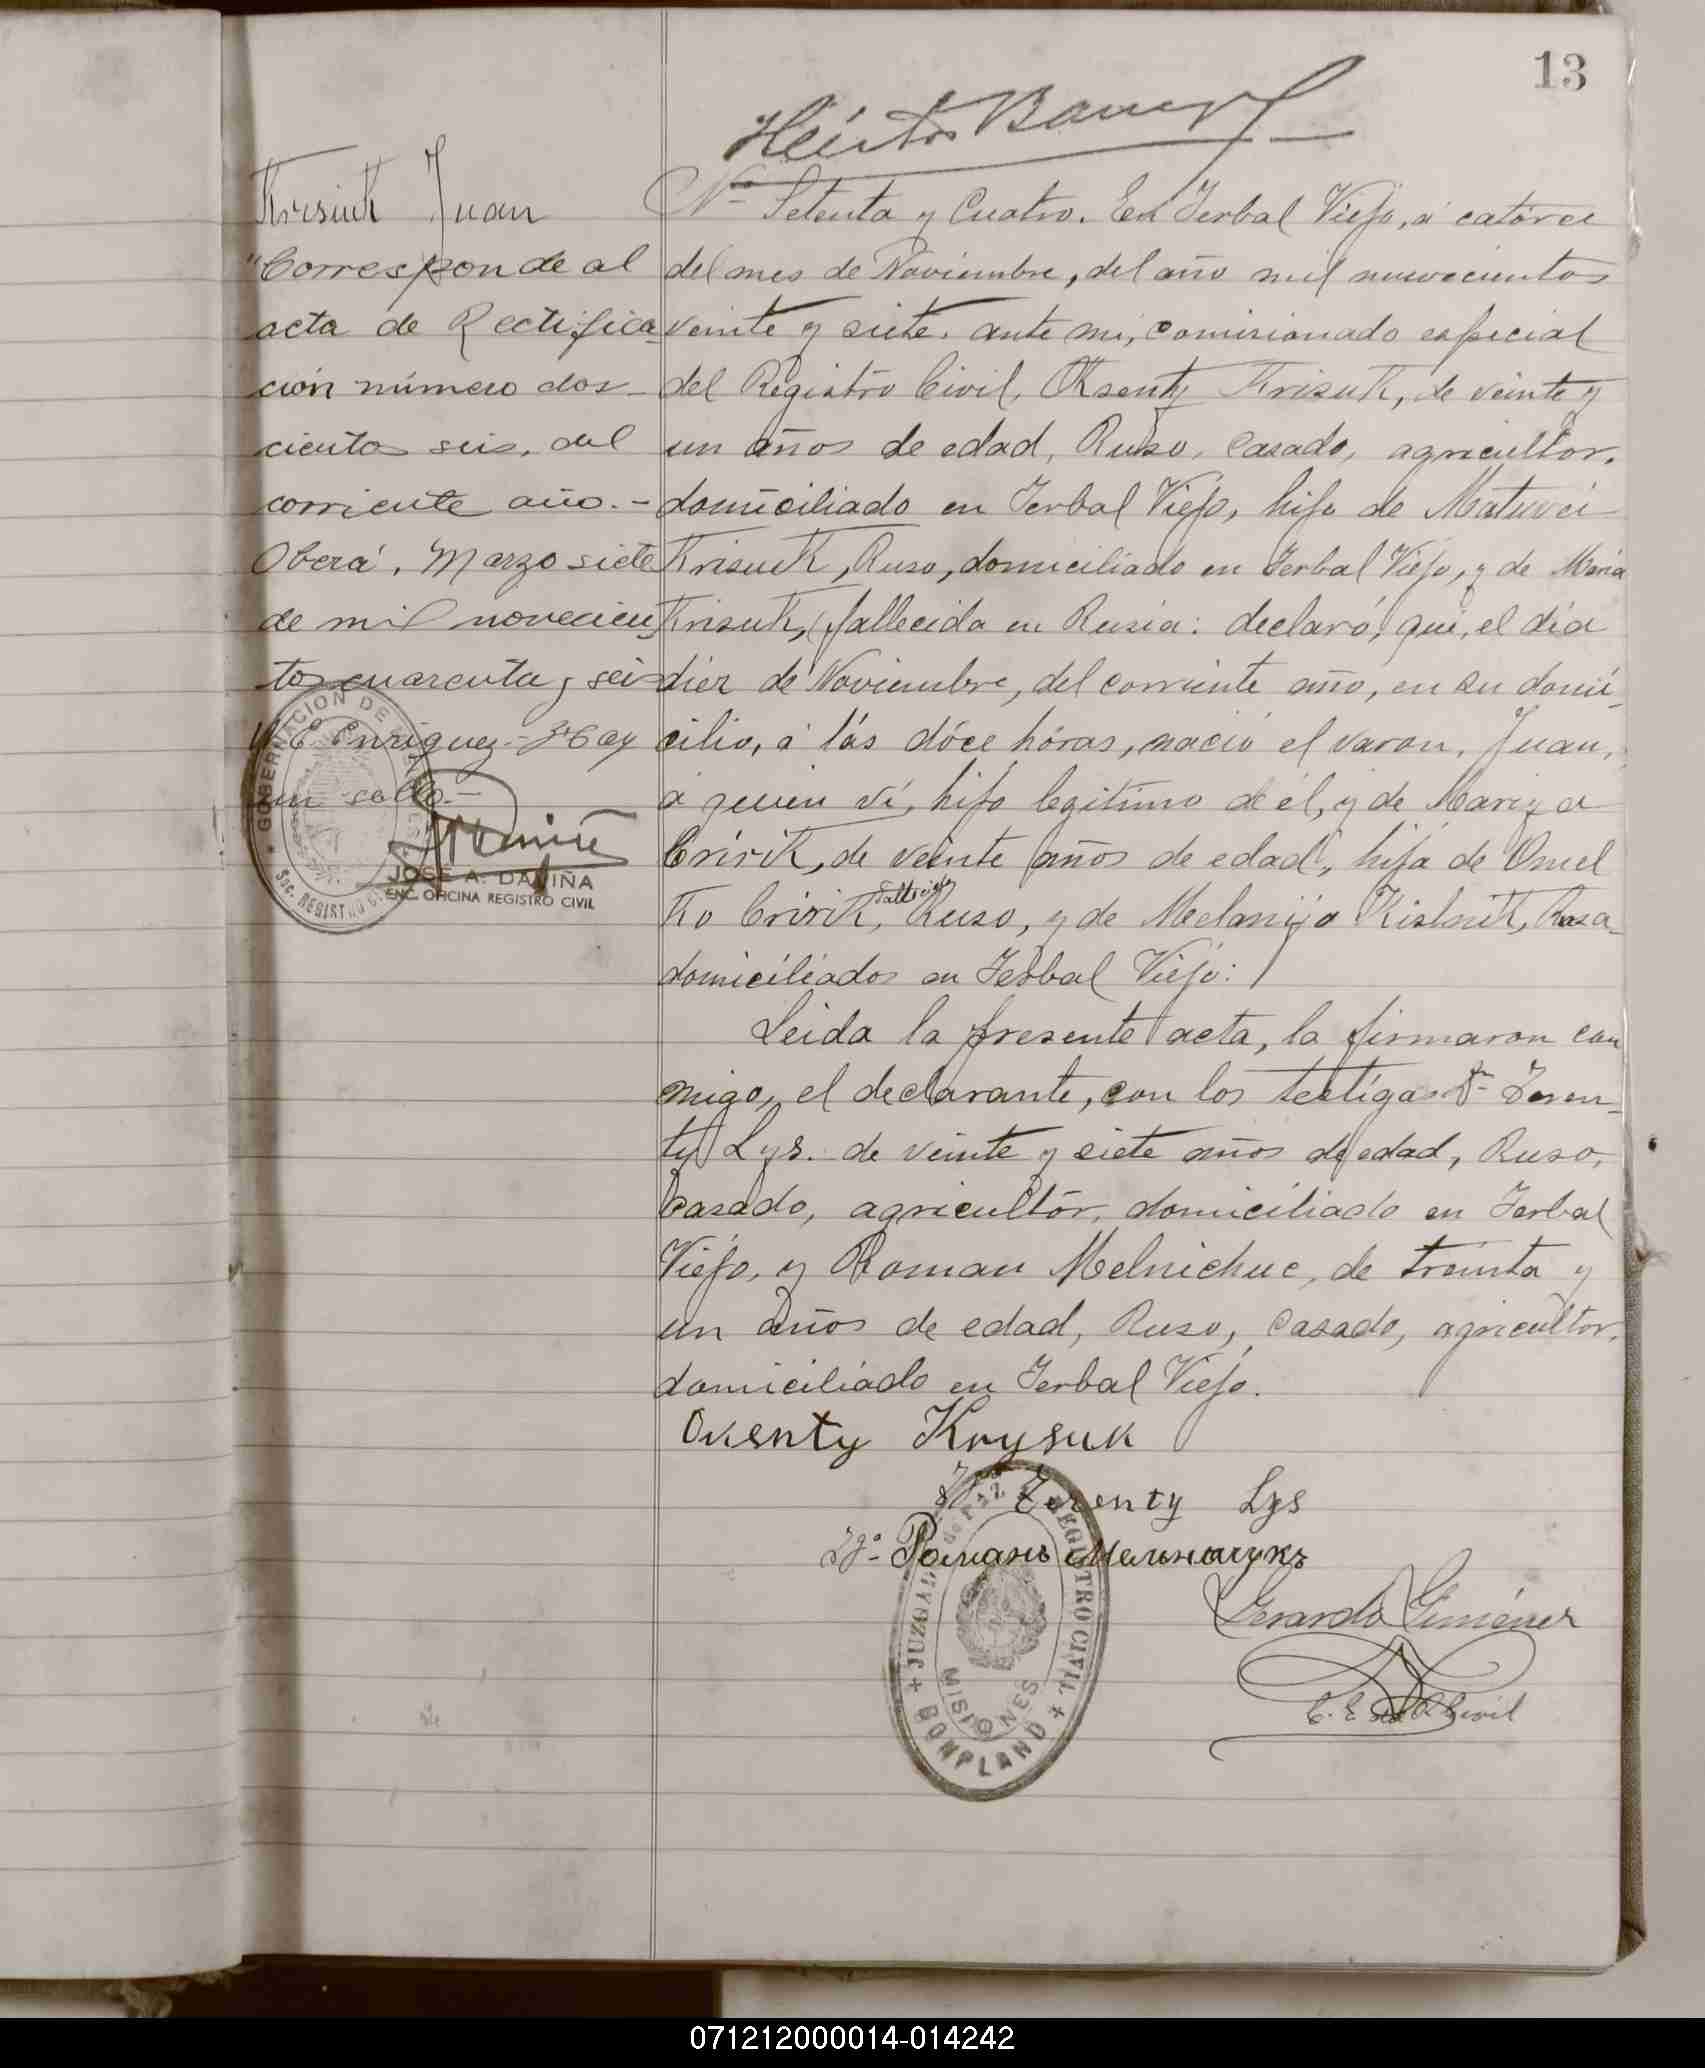 13
Héctor
Krisiuk Juan
"Corresponde al
acta de Rectifica-
ción número dos-
cientos seis, del
corriente año.-
Oberá, Marzo siete
de mil novecien-
tos cuarenta y seis
Enriquez - Hay
un sello.-
GOBERNACION DE
Sec. REGISTRO CIVIL
JOSE A. DAVIÑA
ENC. OFICINA REGISTRO CIVIL
Nº Setenta y Cuatro. En Yerbal Viejo, á catórce
del mes de Noviembre, del año mil novecientos
veinte y siete. ante mi, comisionado especial
del Registro Civil, Oksenty Krisuk, de veinte y
un años de edad, Ruso, Casado, agricultor,
domiciliado en Yerbal Viejo, hijo de Matuvei
Krisuk, Ruso, domiciliado en Yerbal Viejo, y de Maria
Krisuk, fallecida en Rusia: declaró, que, el día
diez de Noviembre, del corriente año, en su domi-
cilio, á lás dóce hóras, nació el varon, Juan,
á quien ví, hijo legitimo de él, y de Mariya
Cririk, de veinte años de edad, hija de Omel
Ko Cririk, fallecido Ruso, y de Melanija Kislink, Rusa-
domiciliados en Yerbal Viejo:
Leida la presente acta, la firmaron con
migo, el declarante, con los testigos Dn Teren-
ty Lys. de veinte y siete años de edad, Ruso,
Casado, agricultór, domiciliado en Yerbal
Viejo, y Roman Melnichuc, de treinta y
un años de edad, Ruso, Casado, agricultor,
domiciliado en Yerbal Viejo.
Oksenty Krysuk
Tgº Terenty Lys
Tgº- Романъ Мельничукъ
JUZGADO de PAZ Y REGISTRO CIVIL
MISIONES
BONPLAND
Gerardo Giménez
C. E. del R. Civil
071212000014-014242